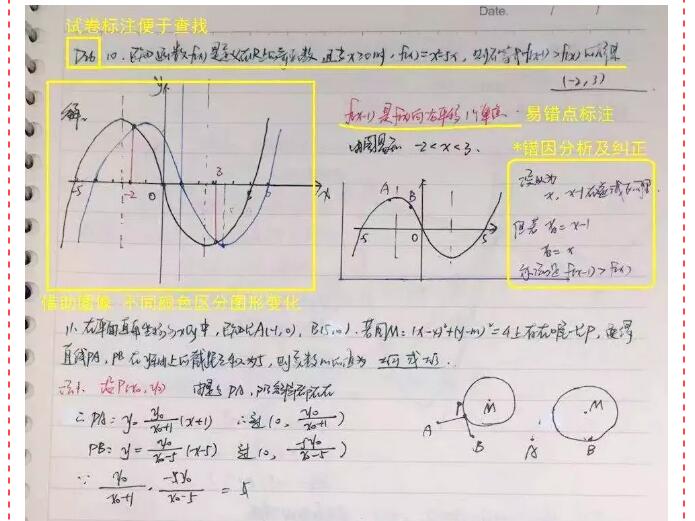 试卷标注便于查找
Date.
10. 已知函数f(x)是定义在R上的奇函数 且当x>0时, f(x)=x²-5x, 则不等式f(x-1)>f(x)的解集
(-2,3)
解:
f(x-1)是f(x)向右平移1个单位
易错点标注
由图易知 -2<x<3.
*错因分析及纠正
误以为
x, x-1在
但若 x₁=x-1
x₂=x
f(x-1)>f(x)
y
-5
-2
0
3
5
6
x
A
B
-5
0
5
借助图像 不同颜色区分图形变化
11. 在平面直角坐标系xOy中, 已知A(-1,0), B(5,0). 若圆M: (x-4)²+(y-m)²=4上存在唯一点P, 使得
直线PA, PB在y轴上的截距之积为5, 则实数m的值为
设P(x₀,y₀) 由题意PA, PB斜率都存在
∴PA: y=y₀/(x₀+1)(x+1) ∴过(0, y₀/(x₀+1))
PB: y=y₀/(x₀-5)(x-5) 过(0, -5y₀/(x₀-5))
∵ y₀/(x₀+1)·-5y₀/(x₀-5)=5
P
M
A
B
M
A
B